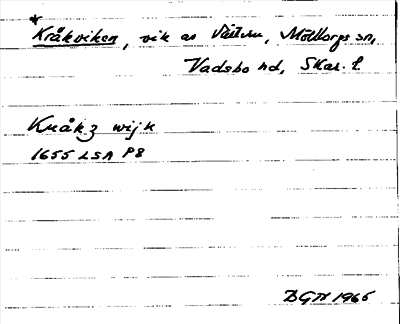 * Kråkviken, vik av Vättern, Mölltorps sn,
Vadsbo hd, Skar. l.
Kråkz wijk
1655 LSA P8
BGN 1965